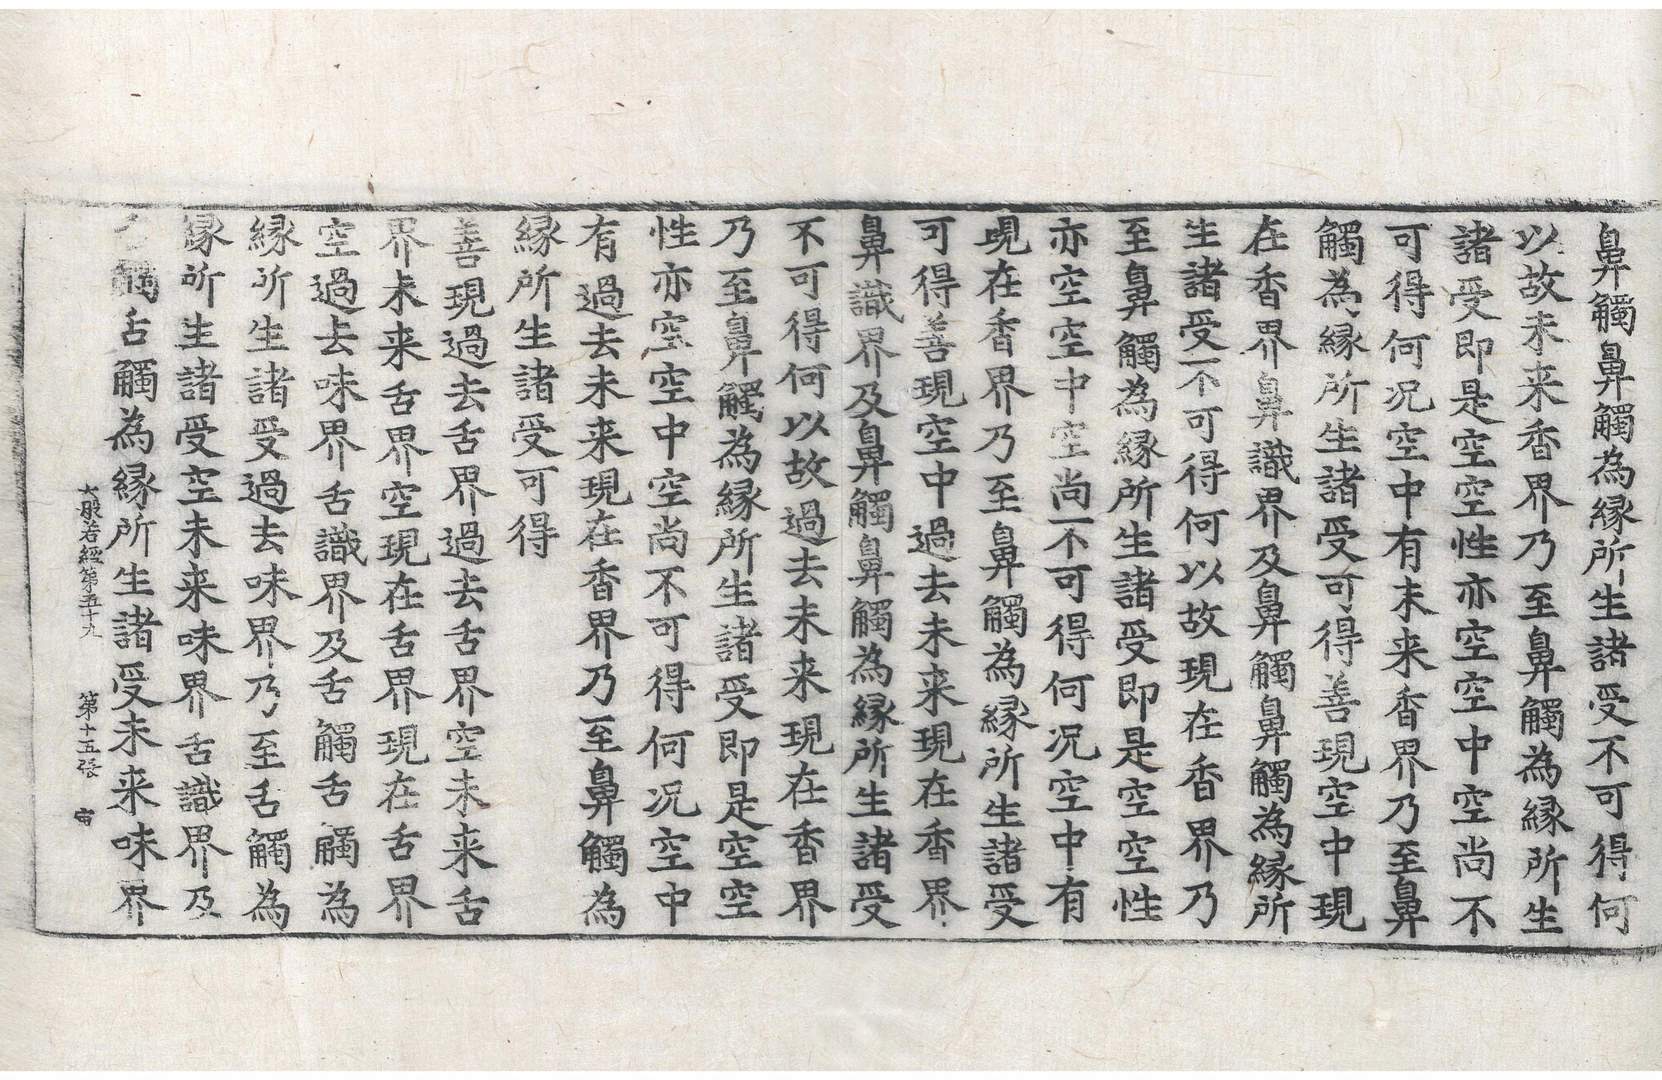 鼻觸鼻觸為縁所生諸受不可得何
以故未来香界乃至鼻觸為縁所生
諸受即是空空性亦空空中空尚不
可得何况空中有未来香界乃至鼻
觸為縁所生諸受可得善現空中現
在香界鼻識界及鼻觸鼻觸為縁所
生諸受不可得何以故現在香界乃
至鼻觸為縁所生諸受即是空空性
亦空空中空尚不可得何况空中有
現在香界乃至鼻觸為縁所生諸受
可得善現空中過去未来現在香界
鼻識界及鼻觸鼻觸為縁所生諸受
不可得何以故過去未来現在香界
乃至鼻觸為縁所生諸受即是空空
性亦空空中空尚不可得何况空中
有過去未来現在香界乃至鼻觸為
縁所生諸受可得
善現過去舌界過去舌界空未来舌
界未来舌界空現在舌界現在舌界
空過去味界舌識界及舌觸舌觸為
縁所生諸受過去味界乃至舌觸為
縁所生諸受空未来味界舌識界及
舌觸舌觸為縁所生諸受未来味界
大般若經第五十九 第十五張